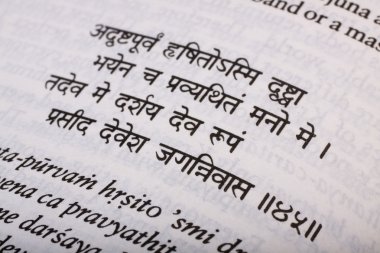 juna a
and or a mas
अदृष्टपूर्वं हृषितोऽस्मि दृष्ट्वा
भयेन च प्रव्यथितं मनो मे ।
तदेव मे दर्शय देव रूपं
प्रसीद देवेश जगन्निवास ॥४५॥
ṭa-pūrvaṁ hṛṣito 'smi dṛ
yena ca pravyathit
me darśaya